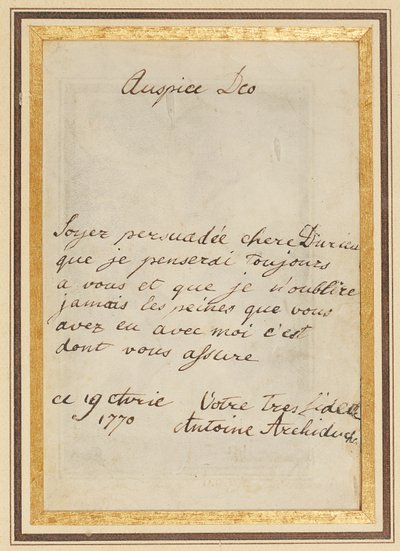 Auspice Deo
Soyez persuadée chere Durieu
que je penserai Toujours
a vous et que je n'oublire
jamais les peines que vous
avez eu avec moi c'est
dont vous assure
ce 19 Avrie Votre tres fidelle
1770 Antoine Archiduch.